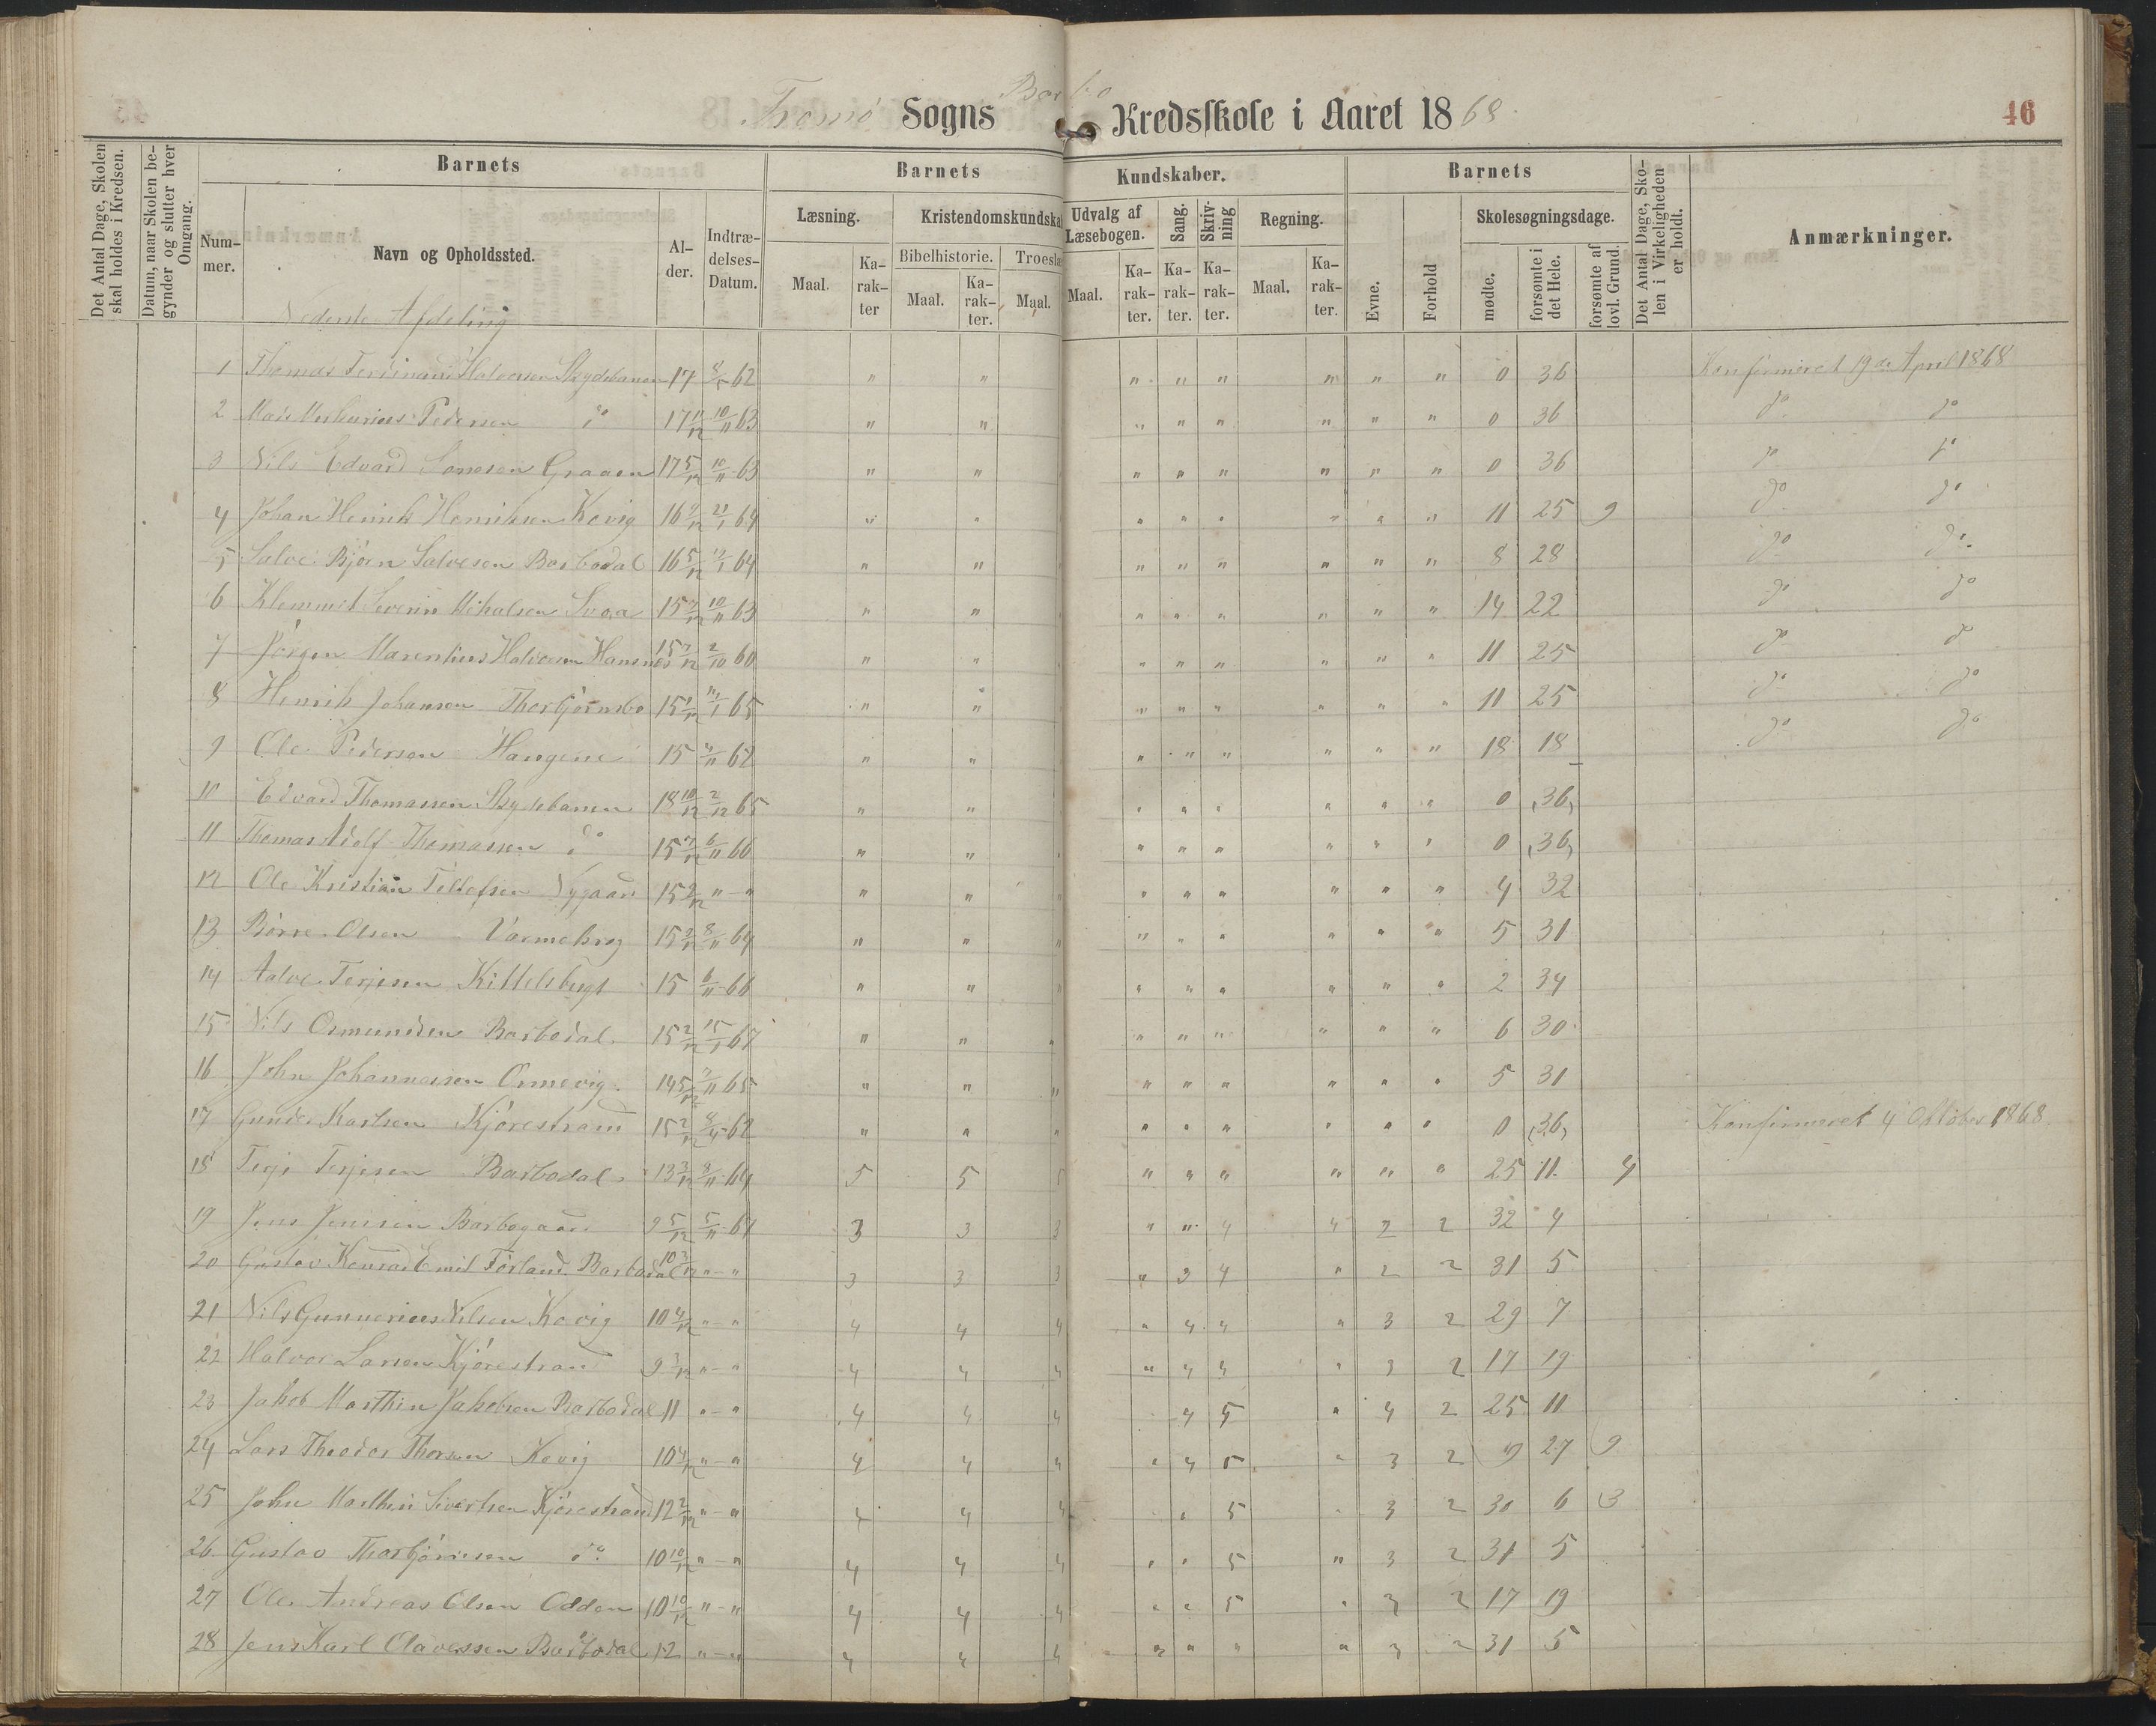 Tromø Sogns Barbo Kredsskole i Aaret 1868.
46
Det Antal Dage, Skolen skal holdes i Kredsen.
Datum, naar Skolen begynder og slutter hver Omgang.
Barnets
Nummer.
Navn og Opholdssted.
Alder.
Indtrædelses-Datum.
Barnets Kundskaber.
Læsning.
Maal.
Karakter
Kristendomskundska
Bibelhistorie.
Maal.
Karakter.
Troeslæ
Maal.
Udvalg af Læsebogen.
Maal.
Karakter.
Sang.
Karakter.
Skrivning
Karakter.
Regning.
Maal.
Karakter.
Barnets
Evne.
Forhold
Skolesøgningsdage.
mødte.
forsømte i det Hele.
forsømte af lovl. Grund.
Det Antal Dage, Skolen i Virkeligheden er holdt.
Anmærkninger.
Nederste Afdeling
1 Thomas Ferdinand Halvorsen Skydebanen 17 8/5 62 " " " " " " " " 0 36 Konfirmeret 19de April 1868
2 Mads Merkurius Pedersen do 17 11/12 10/11 63 " " " " " " " " 0 36 do do
3 Nils Edvard Sørensen Graaen 17 5/12 10/11 63 " " " " " " " " 0 36 do do
4 Johan Henrik Henriksen Kovig 16 9/12 21/1 64 " " " " " " " " 11 25 9 do do
5 Salve Bjørn Salvesen Barbodal 16 5/12 12/1 64 " " " " " " " " 8 28 do do
6 Klemmet Severin Mikalsen Svaa 15 7/12 10/11 63 " " " " " " " " 14 22 do do
7 Jørgen Marentius Halvorsen Hansnes 15 7/12 2/10 60 " " " " " " " " 11 25 do do
8 Henrik Johansen Thorbjørnsbo 15 9/12 14/1 65 " " " " " " " " 11 25 do do
9 Ole Pedersen Haugene 15 4/11 62 " " " " " " " " 18 18 do do
10 Edvard Thomassen Skydebanen 18 10/12 2/12 65 " " " " " " " " 0 (36)
11 Thomas Adolf Thomassen do 15 7/12 6/11 66 " " " " " " " " 0 (36)
12 Ole Kristian Tellefsen Nygaard 15 2/12 " - " " " " " " " " " 4 32
13 Børre Olsen Varmekrog 15 2/12 8/11 64 " " " " " " " " 5 31
14 Aalve Terjesen Kittelsbugt 15 6/11 66 " " " " " " " " 2 34
15 Nils Osmundsen Barbodal 15 2/12 15/1 67 " " " " " " " " 6 30
16 John Johannessen Ormevig 14 5/12 7/11 65 " " " " " " " " 5 31
17 Gunder Karlsen Kjørestrand 15 2/12 8/4 62 " " " " " " " " 0 (36) Konfirmeret 4 Oktober 1868.
18 Terje Terjesen Barbodal 13 3/12 8/11 64 5 5 5 " " " " " " 25 11 4
19 Jens Jensen Barbogaard 9 5/12 5/11 67 3 3 3 " " 4 4 2 2 32 4
20 Gustav Konrad Emil Førland Barbodal 10 3/12 " - " 3 3 3 " 3 4 " 2 2 31 5
21 Nils Gunnerius Nilsen Kovig 10 4/12 " - " 4 4 4 " 4 4 " 3 2 29 7
22 Halvor Larsen Kjørestrand 9 3/12 " - " 4 4 4 " 4 4 " 3 2 17 19
23 Jakob Marthin Jakobsen Barbodal 11 " - " 4 4 4 4 5 " 4 2 25 11
24 Lars Theodor Thorsen Kovig 10 4/12 " - " 4 4 4 " 4 5 " 3 2 9 27 9
25 John Marthin Sivertsen Kjørestrand 12 2/12 " - " 4 4 4 " 5 " 3 2 30 6 3
26 Gustav Thorbjørnsen do 10 10/12 " - " 4 4 4 " " 5 " 3 2 31 5
27 Ole Andreas Olsen Odden 10 10/12 " - " 4 4 4 " " 5 " 3 2 17 19
28 Jens Karl Olavessen Barbodal 12 " - " 4 4 4 " " " " 3 2 31 5